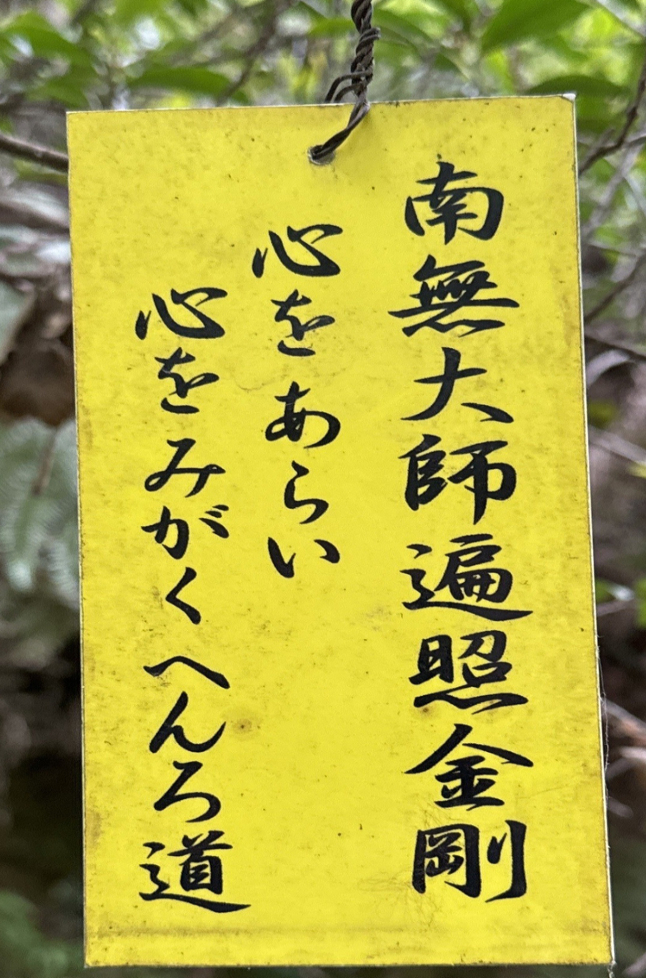 南無大師遍照金剛
心をあらい
心をみがくへんろ道